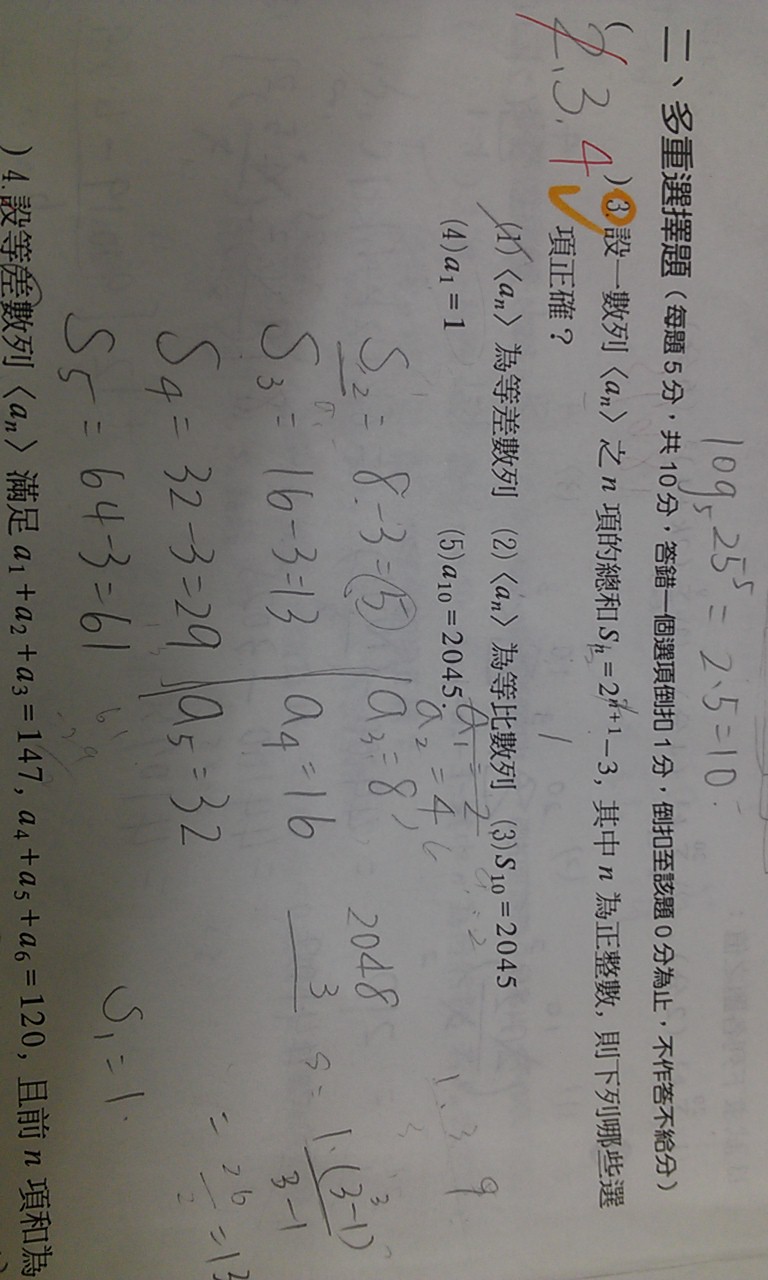 log₅25⁵ = 2.5 = 10.
二、多重選擇題（每題5分，共10分，答錯一個選項倒扣1分，倒扣至該題0分為止，不作答不給分）
( 2, 3, 4 ) 3. 設一數列〈aₙ〉之 n 項的總和 Sₙ = 2ⁿ⁺¹ − 3，其中 n 為正整數，則下列哪些選
項正確？
(1)〈aₙ〉為等差數列 (2)〈aₙ〉為等比數列 (3) S₁₀ = 2045
(4) a₁ = 1 (5) a₁₀ = 2045.
a₁ = 2
a₂ = 4
S₂ = 8 - 3 = 5 a₃ = 8, 2048
S₃ = 16 - 3 = 13 a₄ = 16 3
S₄ = 32 - 3 = 29 a₅ = 32
S₅ = 64 - 3 = 61
1. 3 9
S = 1.(3³-1)
3-1
= 26 = 13
2
S₁ = 1.
) 4. 設等差數列〈aₙ〉滿足 a₁ + a₂ + a₃ = 147, a₄ + a₅ + a₆ = 120, 且前 n 項和為